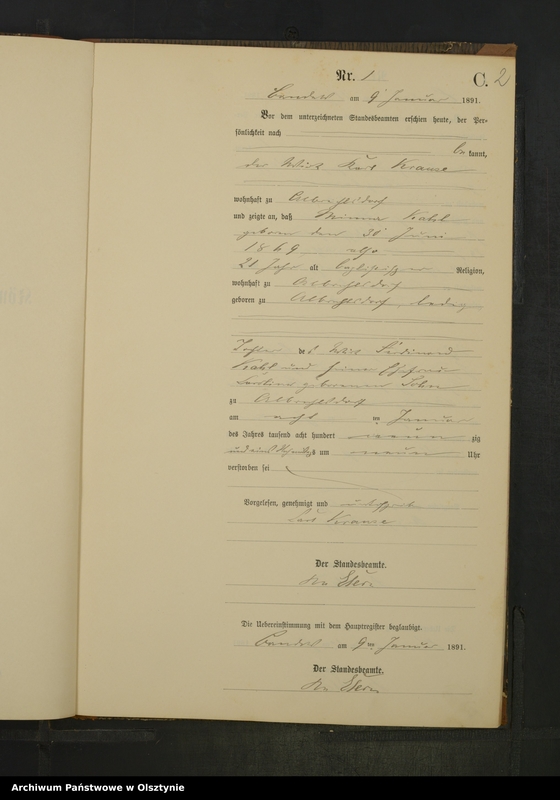 Nr. 1 C. 2
am 9 Januar 1891.
Vor dem unterzeichneten Standesbeamten erschien heute, der Per-
sönlichkeit nach
be kannt,
der Wirt Karl Krause
wohnhaft zu Albrechtsdorf
und zeigte an, daß Minna Kahl
geboren den 30 Juni
1869 also
21 Jahr alt Religion,
wohnhaft zu Albrechtsdorf
geboren zu Albrechtsdorf, ledig
Tochter des Wirt Ferdinand
Kahl und seiner Ehefrau
geborenen
zu Albrechtsdorf
am acht ten Januar
des Jahres tausend acht hundert neun zig
und eins s um neun Uhr
verstorben sei
Vorgelesen, genehmigt und unterschrieben
Karl Krause
Der Standesbeamte.
Die Uebereinstimmung mit dem Hauptregister beglaubigt.
am 9ten Januar 1891.
Der Standesbeamte.
Archiwum Państwowe w Olsztynie